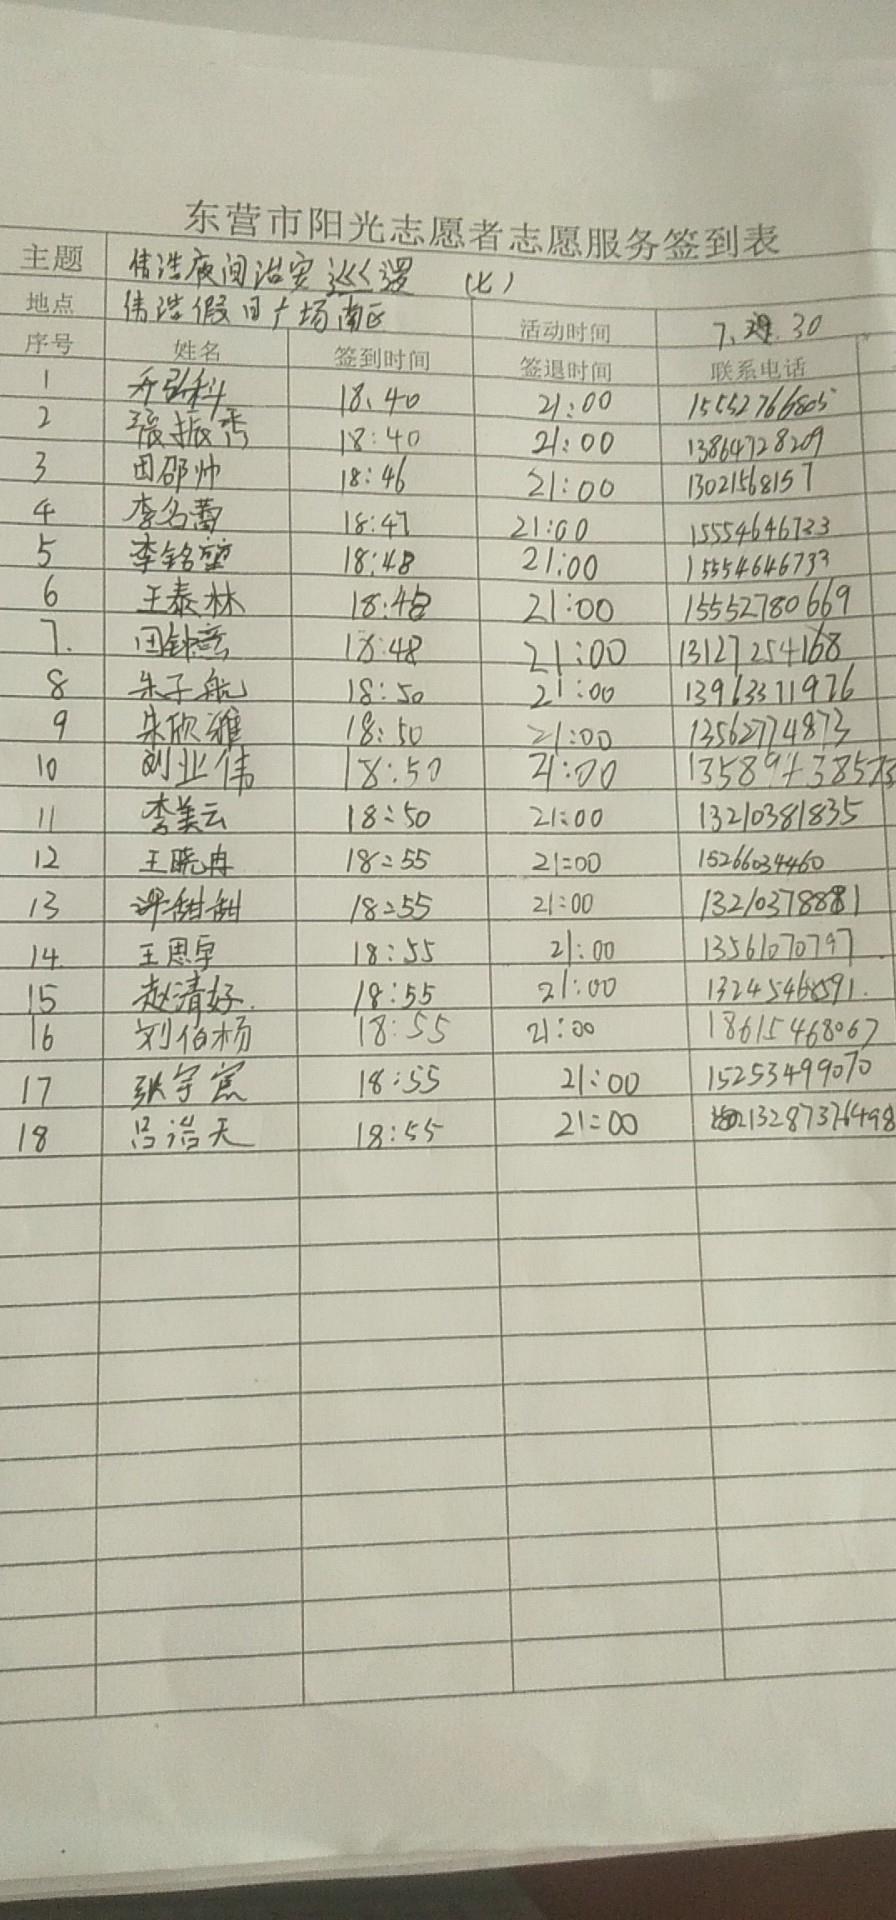 东营市阳光志愿者志愿服务签到表
主题 伟浩夜间治安巡逻 (七)
地点 伟浩假日广场南区 活动时间 7. 30
序号 姓名 签到时间 签退时间 联系电话
1 18:40 21:00 15552766805
2 张振秀 18:40 21:00 13864728209
3 田邵帅 18:46 21:00 13021568157
4 李名蕾 18:47 21:00 15554646733
5 李铭堃 18:48 21:00 15554646733
6 王泰林 18:48 21:00 15552780669
7. 田钟意 18:48 21:00 13127254168
8 朱子航 18:50 21:00 13963371976
9 朱欣雅 18:50 21:00 13562774873
10 刘业伟 18:50 21:00 13589438573
11 李美云 18:50 21:00 13210381835
12 王晓冉 18:55 21:00 15266034460
13 谭甜甜 18:55 21:00 13210378881
14 王思宇 18:55 21:00 13561070797
15 赵清好. 18:55 21:00 13245468591.
16 刘伯杨 18:55 21:00 18615468067
17 张宇 18:55 21:00 15253499070
18 吕浩天 18:55 21:00 13287376498